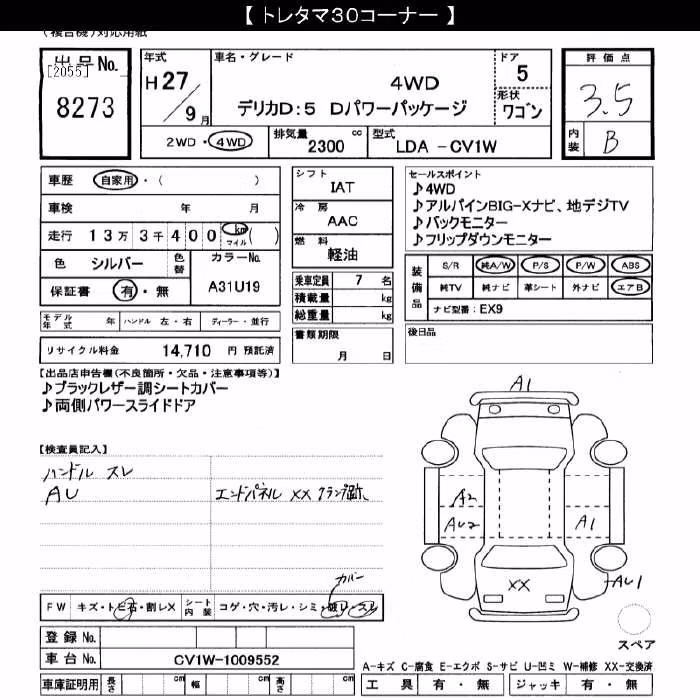 【 トレタマ30コーナー 】
(複合機)対応用紙
出品No.
[2055]
8273
年式
H27/9月
車名・グレード
4WD
デリカD:5 Dパワーパッケージ
ドア
5
形状
ワゴン
評価点
3.5
内装
B
2WD・4WD
排気量
2300 cc
型式
LDA -CV1W
車歴 自家用・( )
車検 年 月
走行 13万 3千 400 km マイル ( )
色 シルバー 色替
カラーNo.
A31U19
保証書 有・無
モデル年式 年 ハンドル 左・右 ディーラー・並行
リサイクル料金 14,710 円 預託済
シフト
IAT
冷房
AAC
燃料
軽油
乗車定員 7 名
積載量 kg
総重量 kg
書類期限
月 日
セールスポイント
♪4WD
♪アルパインBIG-Xナビ、地デジTV
♪バックモニター
♪フリップダウンモニター
装備品
S/R 純A/W P/S P/W ABS
純TV 純ナビ 革シート 外ナビ エアB
ナビ型番: EX9
後日品
【出品店申告欄(不良箇所・欠品・注意事項等)】
♪ブラックレザー調シートカバー
♪両側パワースライドドア
【検査員記入】
ハンドル スレ
AU
エンドパネル XX クランプ跡、
A1
A2
AU2
A1
XX
AU1
カバー
FW キズ・トビ石・割レX
シート内装 コゲ・穴・汚レ・シミ・破レ・スレ
スペア
登録 No.
車台 No. CV1W-1009552
車庫証明用 長さ cm 幅 cm 高さ cm
A-キズ C-腐食 E-エクボ S-サビ U-凹ミ W-補修 XX-交換済
工具 有・無 ジャッキ 有・無